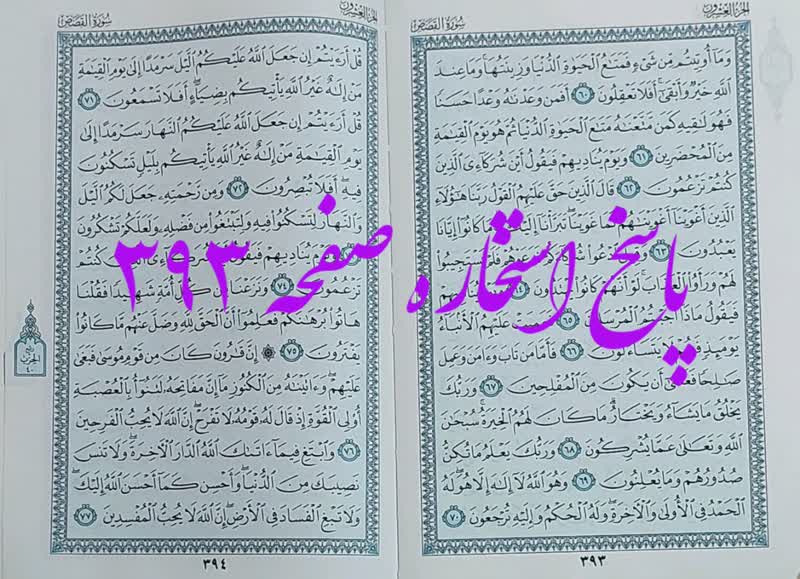 الجزء العشرون
سورة القصص
وَمَآ أُوتِيتُم مِّن شَىْءٍ فَمَتَٰعُ ٱلْحَيَوٰةِ ٱلدُّنْيَا وَزِينَتُهَا ۚ وَمَا عِندَ
ٱللَّهِ خَيْرٌ وَأَبْقَىٰٓ ۚ أَفَلَا تَعْقِلُونَ ٦٠ أَفَمَن وَعَدْنَٰهُ وَعْدًا حَسَنًا
فَهُوَ لَٰقِيهِ كَمَن مَّتَّعْنَٰهُ مَتَٰعَ ٱلْحَيَوٰةِ ٱلدُّنْيَا ثُمَّ هُوَ يَوْمَ ٱلْقِيَٰمَةِ
مِنَ ٱلْمُحْضَرِينَ ٦١ وَيَوْمَ يُنَادِيهِمْ فَيَقُولُ أَيْنَ شُرَكَآءِىَ ٱلَّذِينَ
كُنتُمْ تَزْعُمُونَ ٦٢ قَالَ ٱلَّذِينَ حَقَّ عَلَيْهِمُ ٱلْقَوْلُ رَبَّنَا هَٰٓؤُلَآءِ
ٱلَّذِينَ أَغْوَيْنَآ أَغْوَيْنَٰهُمْ كَمَا غَوَيْنَا ۖ تَبَرَّأْنَآ إِلَيْكَ ۖ مَا كَانُوٓا۟ إِيَّانَا
يَعْبُدُونَ ٦٣ وَقِيلَ ٱدْعُوا۟ شُرَكَآءَكُمْ فَدَعَوْهُمْ فَلَمْ يَسْتَجِيبُوا۟
لَهُمْ وَرَأَوُا۟ ٱلْعَذَابَ ۚ لَوْ أَنَّهُمْ كَانُوا۟ يَهْتَدُونَ ٦٤ وَيَوْمَ يُنَادِيهِمْ
فَيَقُولُ مَاذَآ أَجَبْتُمُ ٱلْمُرْسَلِينَ ٦٥ فَعَمِيَتْ عَلَيْهِمُ ٱلْأَنۢبَآءُ
يَوْمَئِذٍ فَهُمْ لَا يَتَسَآءَلُونَ ٦٦ فَأَمَّا مَن تَابَ وَءَامَنَ وَعَمِلَ
صَٰلِحًا فَعَسَىٰٓ أَن يَكُونَ مِنَ ٱلْمُفْلِحِينَ ٦٧ وَرَبُّكَ
يَخْلُقُ مَا يَشَآءُ وَيَخْتَارُ ۗ مَا كَانَ لَهُمُ ٱلْخِيَرَةُ ۚ سُبْحَٰنَ
ٱللَّهِ وَتَعَٰلَىٰ عَمَّا يُشْرِكُونَ ٦٨ وَرَبُّكَ يَعْلَمُ مَا تُكِنُّ
صُدُورُهُمْ وَمَا يُعْلِنُونَ ٦٩ وَهُوَ ٱللَّهُ لَآ إِلَٰهَ إِلَّا هُوَ ۖ لَهُ
ٱلْحَمْدُ فِى ٱلْأُولَىٰ وَٱلْءَاخِرَةِ ۖ وَلَهُ ٱلْحُكْمُ وَإِلَيْهِ تُرْجَعُونَ ٧٠
٣٩٣
پاسخ استخاره صفحه ۳۹۳
الجزء العشرون
سورة القصص
قُلْ أَرَءَيْتُمْ إِن جَعَلَ ٱللَّهُ عَلَيْكُمُ ٱلَّيْلَ سَرْمَدًا إِلَىٰ يَوْمِ ٱلْقِيَٰمَةِ
مَنْ إِلَٰهٌ غَيْرُ ٱللَّهِ يَأْتِيكُم بِضِيَآءٍ ۖ أَفَلَا تَسْمَعُونَ ٧١
قُلْ أَرَءَيْتُمْ إِن جَعَلَ ٱللَّهُ عَلَيْكُمُ ٱلنَّهَارَ سَرْمَدًا إِلَىٰ
يَوْمِ ٱلْقِيَٰمَةِ مَنْ إِلَٰهٌ غَيْرُ ٱللَّهِ يَأْتِيكُم بِلَيْلٍ تَسْكُنُونَ
فِيهِ ۖ أَفَلَا تُبْصِرُونَ ٧٢ وَمِن رَّحْمَتِهِۦ جَعَلَ لَكُمُ ٱلَّيْلَ
وَٱلنَّهَارَ لِتَسْكُنُوا۟ فِيهِ وَلِتَبْتَغُوا۟ مِن فَضْلِهِۦ وَلَعَلَّكُمْ تَشْكُرُونَ
٧٣ وَيَوْمَ يُنَادِيهِمْ فَيَقُولُ أَيْنَ شُرَكَآءِىَ ٱلَّذِينَ كُنتُمْ
تَزْعُمُونَ ٧٤ وَنَزَعْنَا مِن كُلِّ أُمَّةٍ شَهِيدًا فَقُلْنَا
هَاتُوا۟ بُرْهَٰنَكُمْ فَعَلِمُوٓا۟ أَنَّ ٱلْحَقَّ لِلَّهِ وَضَلَّ عَنْهُم مَّا كَانُوا۟
يَفْتَرُونَ ٧٥ ۞ إِنَّ قَٰرُونَ كَانَ مِن قَوْمِ مُوسَىٰ فَبَغَىٰ
عَلَيْهِمْ ۖ وَءَاتَيْنَٰهُ مِنَ ٱلْكُنُوزِ مَآ إِنَّ مَفَاتِحَهُۥ لَتَنُوٓأُ بِٱلْعُصْبَةِ
أُو۟لِى ٱلْقُوَّةِ إِذْ قَالَ لَهُۥ قَوْمُهُۥ لَا تَفْرَحْ ۖ إِنَّ ٱللَّهَ لَا يُحِبُّ ٱلْفَرِحِينَ
٧٦ وَٱبْتَغِ فِيمَآ ءَاتَىٰكَ ٱللَّهُ ٱلدَّارَ ٱلْءَاخِرَةَ ۖ وَلَا تَنسَ
نَصِيبَكَ مِنَ ٱلدُّنْيَا ۖ وَأَحْسِن كَمَآ أَحْسَنَ ٱللَّهُ إِلَيْكَ ۖ
وَلَا تَبْغِ ٱلْفَسَادَ فِى ٱلْأَرْضِ ۖ إِنَّ ٱللَّهَ لَا يُحِبُّ ٱلْمُفْسِدِينَ ٧٧
٣٩٤